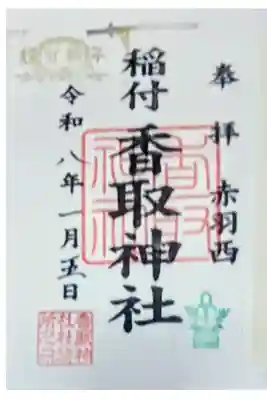 奉拝 赤羽西
稲付 香取神社
令和八年一月五日